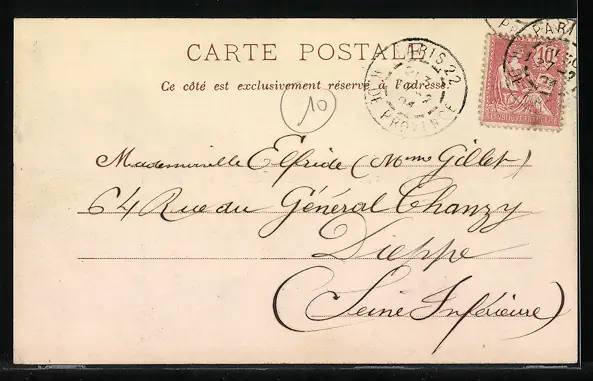 CARTE POSTALE
Ce côté est exclusivement réservé à l'adresse.
PARIS 22
R. DE PROVENCE
PARIS
10
10
Mademoiselle Elfride (Mme Gillet)
64 Rue du Général Chanzy
Dieppe
(Seine Inférieure)